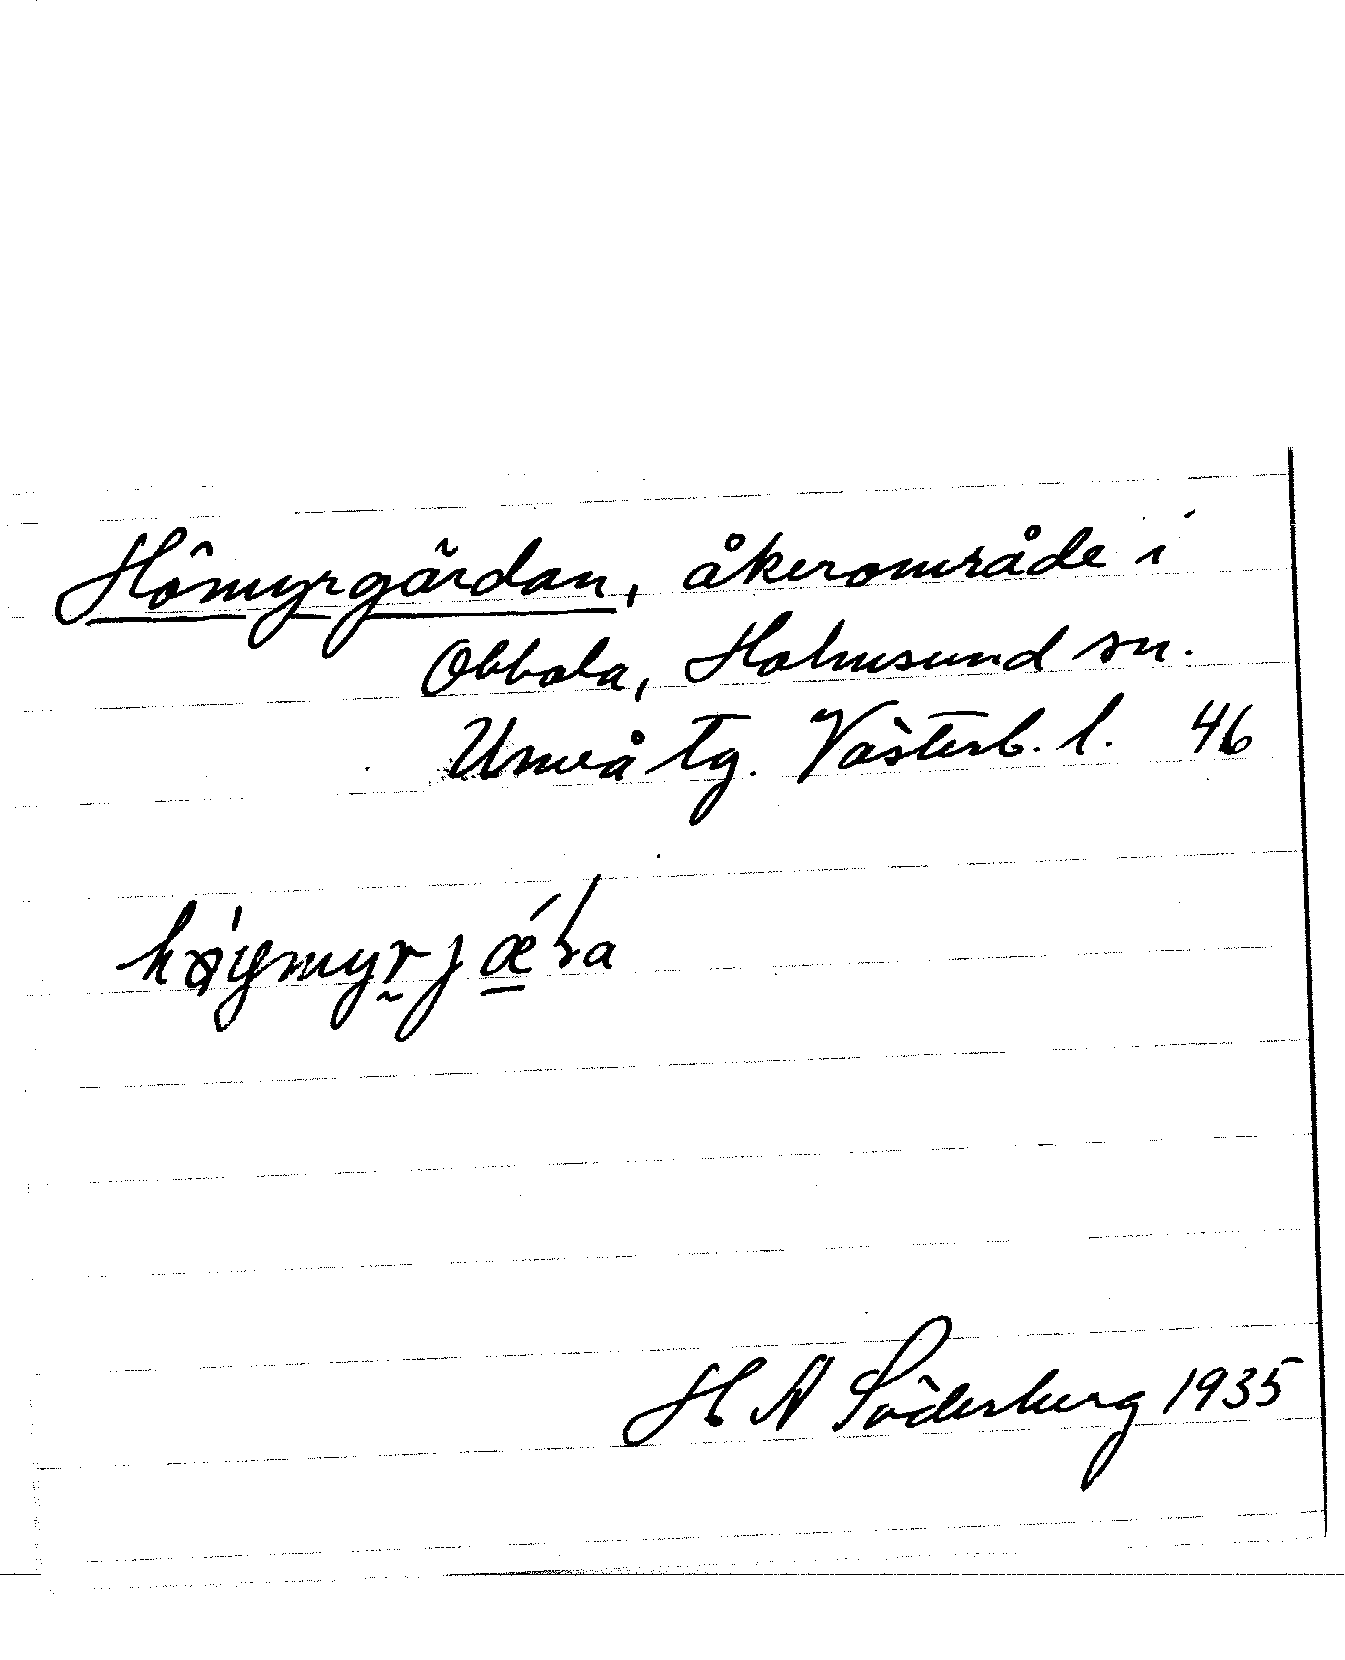 Hömyrgärdan, åkerområde i
Obbola, Holmsund sn.
Umeå tg. Västerb. l. 46
H N Söderberg 1935